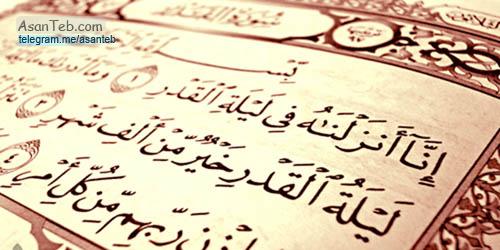 AsanTeb.com
telegram.me/asanteb
سُورَةُ القَدْرِ
إِنَّآ أَنزَلْنَٰهُ فِى لَيْلَةِ ٱلْقَدْرِ ١ وَمَآ
لَيْلَةُ ٱلْقَدْرِ خَيْرٌ مِّنْ أَلْفِ شَهْرٍ ٣
رَبِّهِم مِّن كُلِّ أَمْرٍ ٤